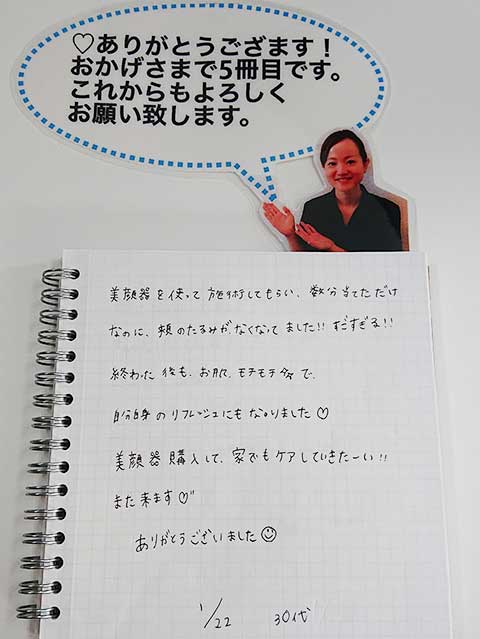 ♡ありがとうござます！
おかげさまで5冊目です。
これからもよろしく
お願い致します。
美顔器を使って施術してもらい、数分当てただけ
なのに、頬のたるみがなくなってました!! すごすぎる!!
終わった後も、お肌、モチモチで、
自分自身のリフレッシュにもなりました♡
美顔器購入して、家でもケアしていきたーい!!
また来ます♡
ありがとうございました☺
1/22 30代